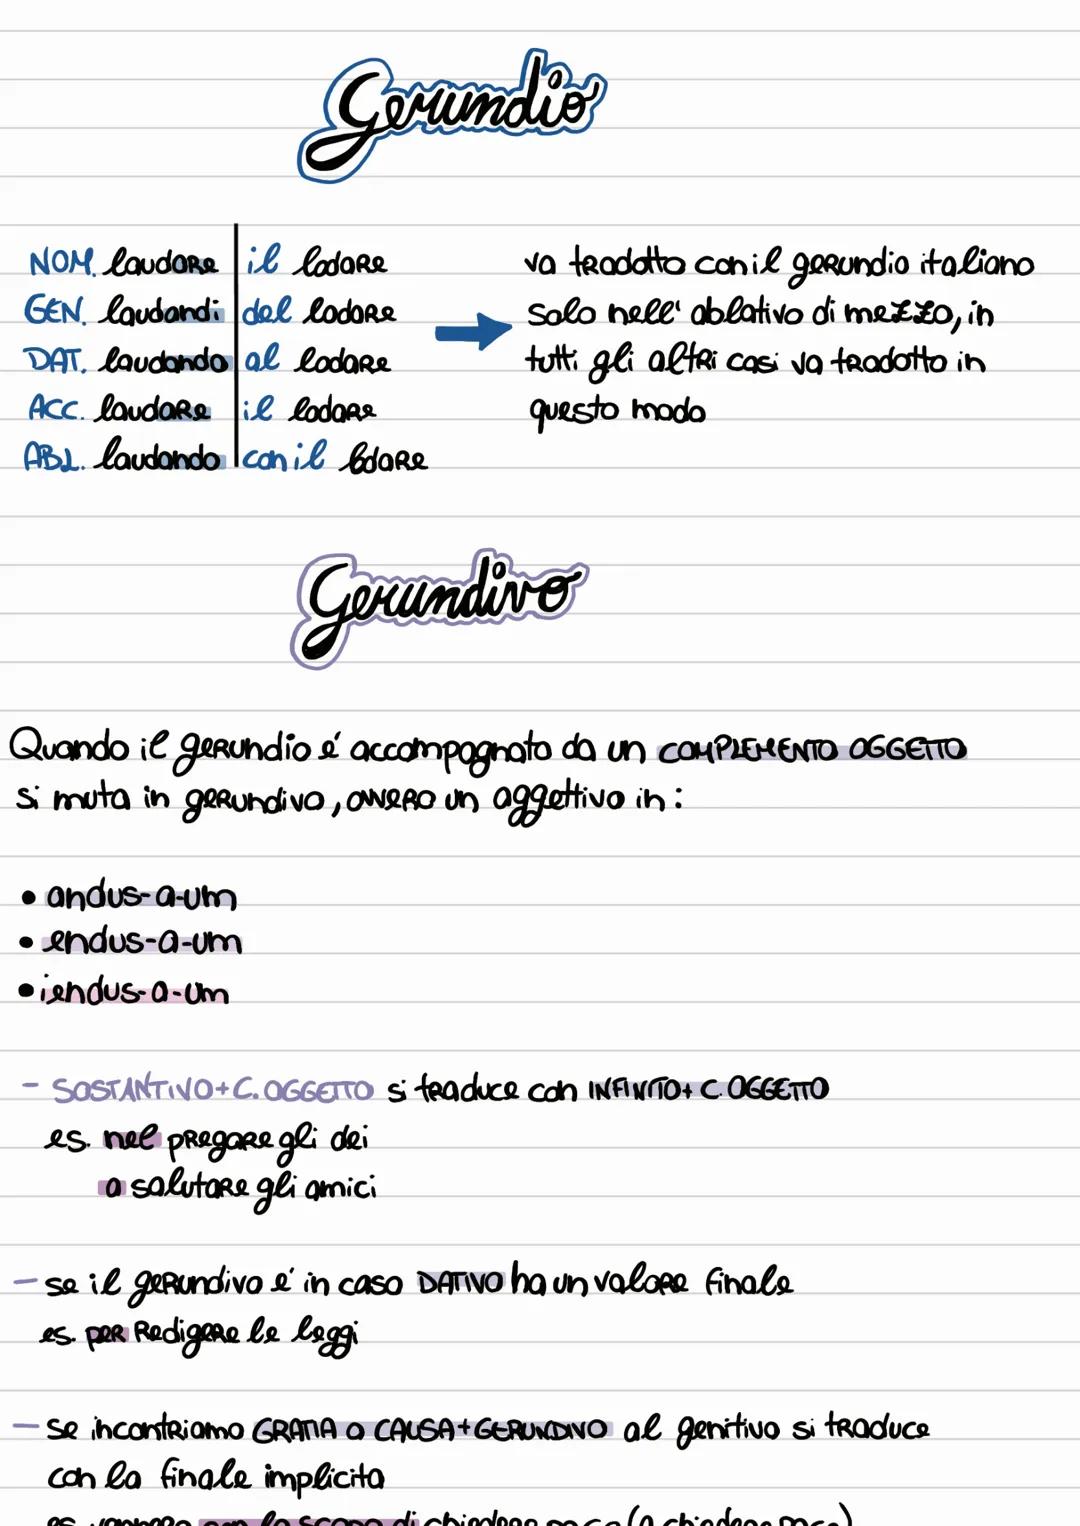 Gerundio
NOM. laudare il lodare
GEN. laudandi del lodare
DAT. laudando al lodare
ACC. laudare il lodare
ABL. laudando con il lodare
va tradotto con il gerundio italiano
solo nell' ablativo di mezzo, in
tutti gli altri casi va tradotto in
questo modo
Gerundivo
Quando il gerundio é accompagnato da un COMPLEMENTO OGGETTO
si muta in gerundivo, ovvero un aggettivo in:
• andus-a-um
• endus-a-um
• iendus-a-um
- SOSTANTIVO+C.OGGETTO si traduce con INFINITO+ C.OGGETTO
es. nel pregare gli dei
a salutare gli amici
- se il gerundivo é in caso DATIVO ha un valore finale
es. per redigere le leggi
- se incontriamo GRATIA o CAUSA+GERUNDIVO al genitivo si traduce
con la finale implicita
es. vennero con lo scopo di chiedere pace (a chiedere pace)